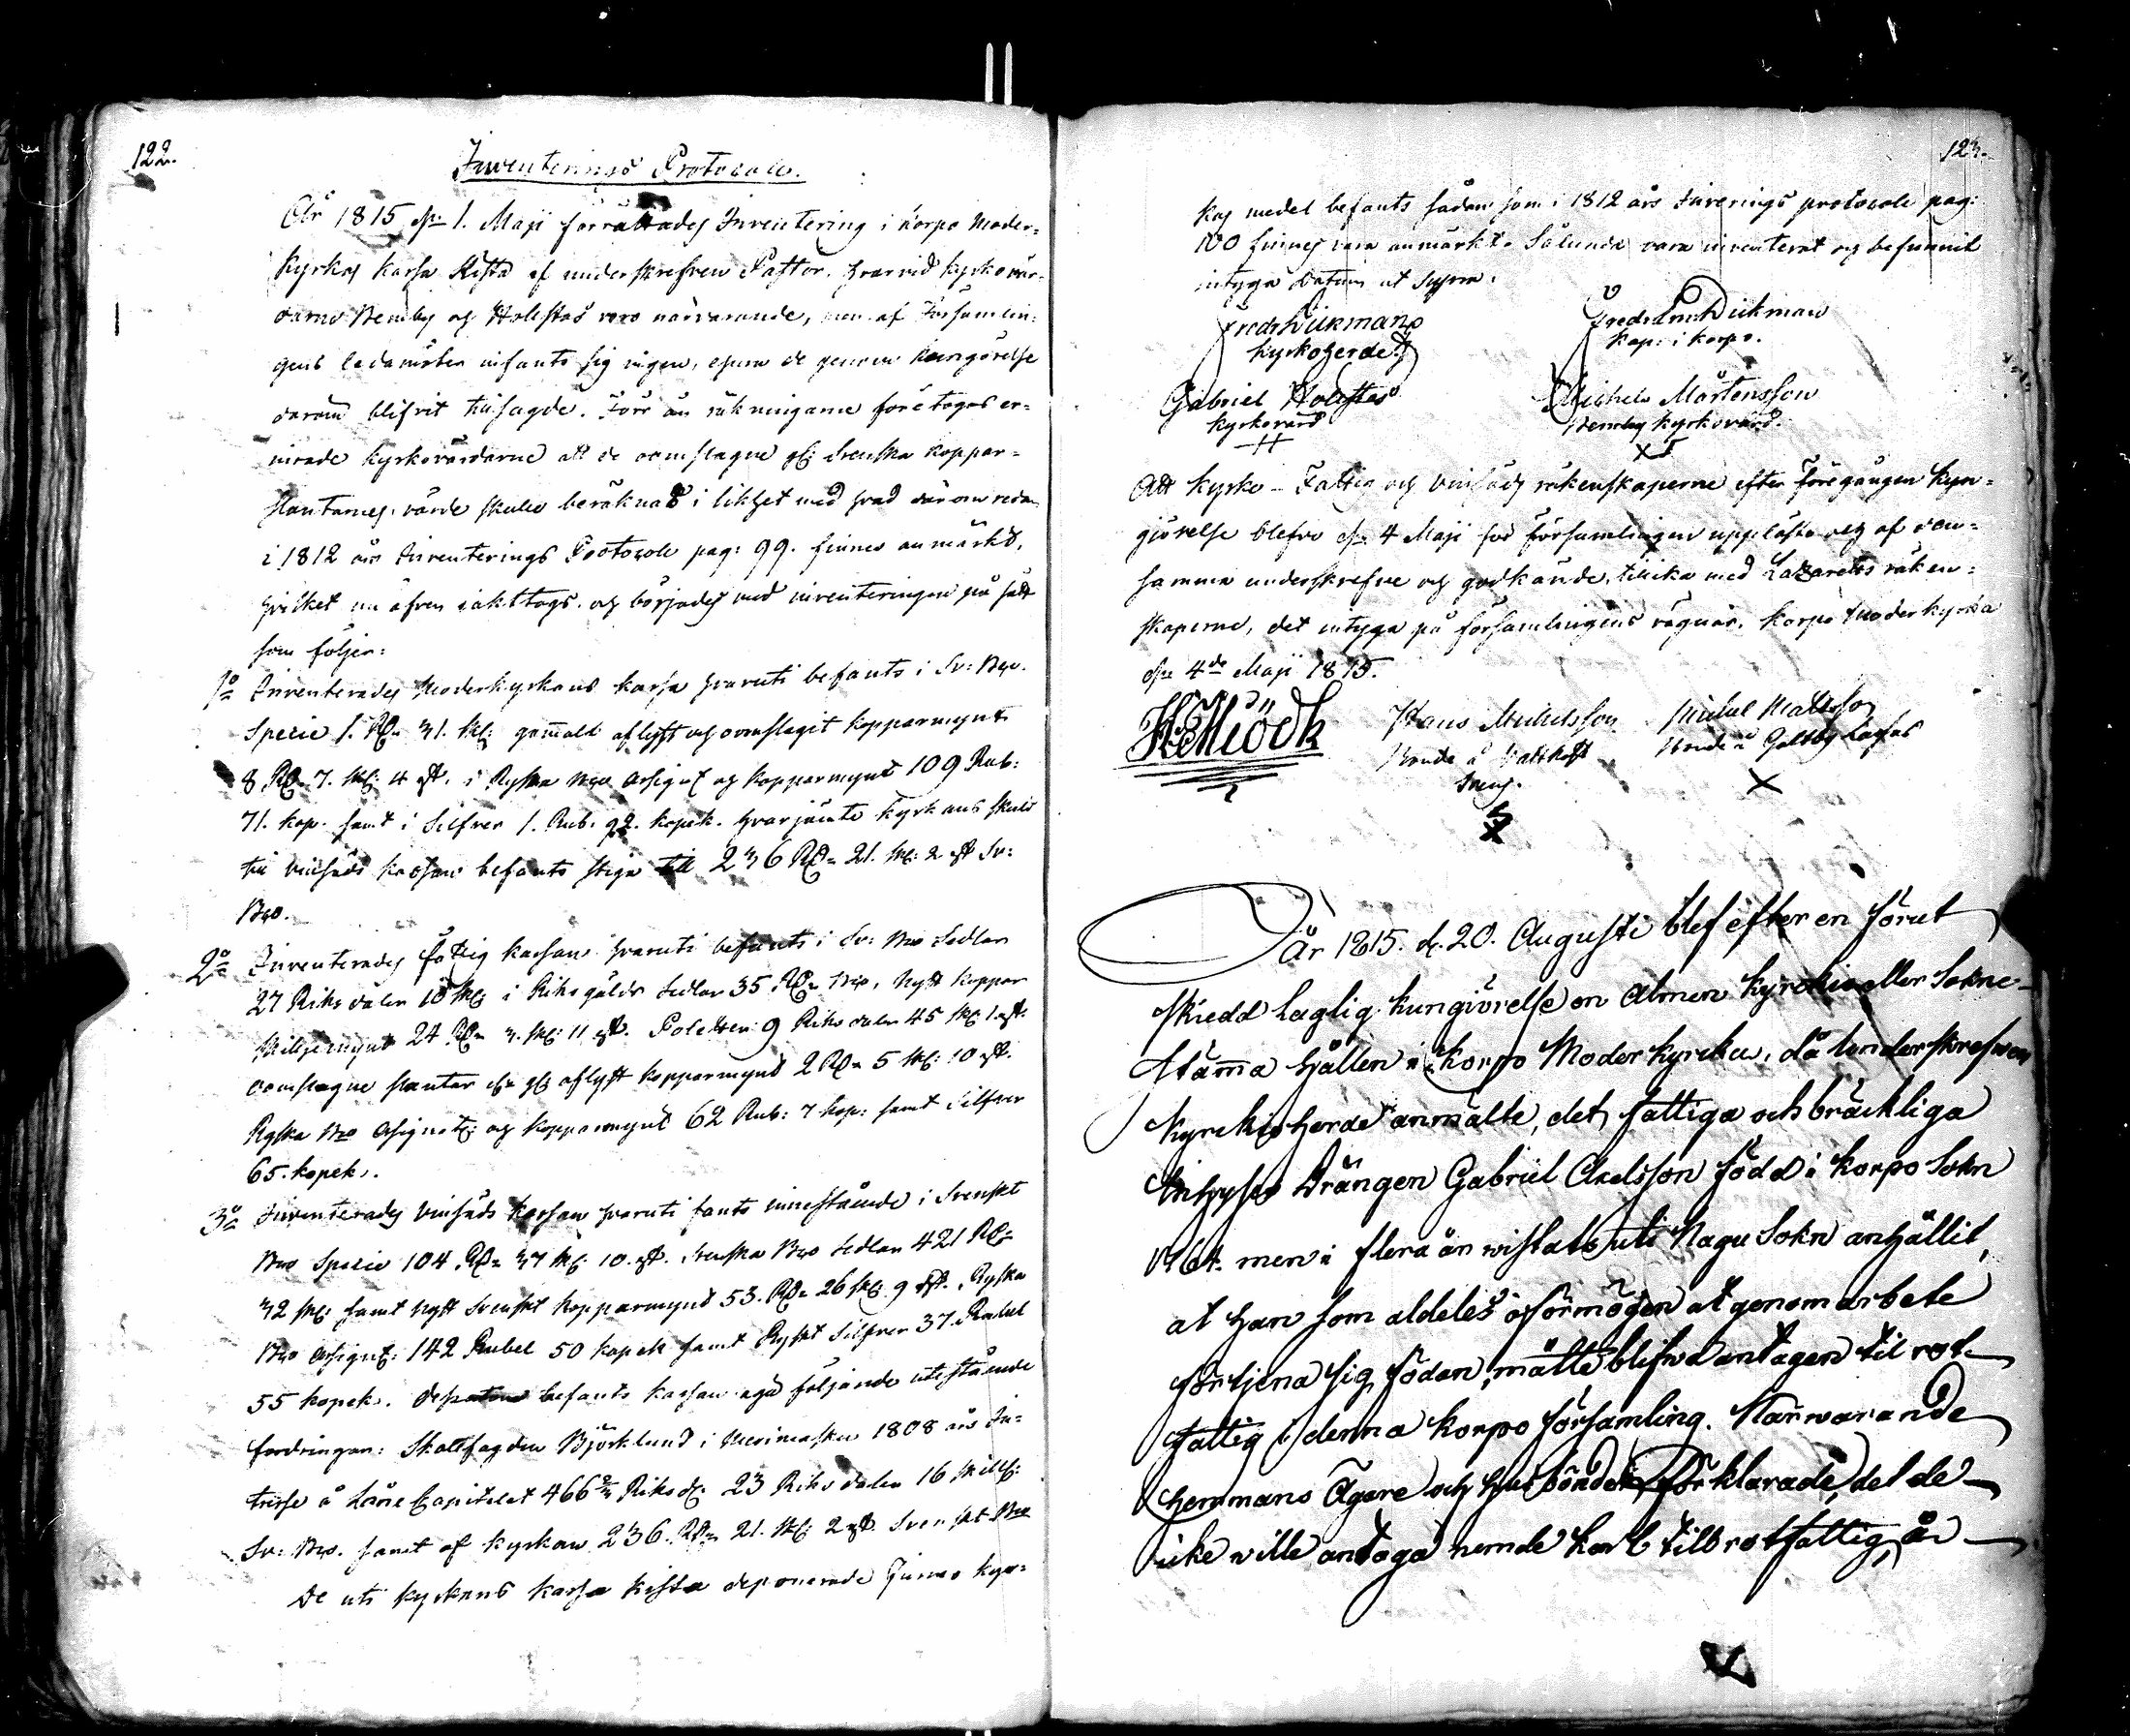 122.
Inventerings Protocoll.
År 1815 d. 1. Maji förrättades Inventering i Korpo Moder-
kyrkas Kassa Kista af underskrefven Pastor, hvarvid kyrkovär-
darne Bemby og Holstas voro närvarande, men af Församlin-
gens ledamöter infants sig ingen, ehuru de genom kungörelse
därom blifvit tilsagde. Förr än räkningarne företogos er-
inrade kyrkovärdarne att de omslagne gl: Svenska koppar-
slantarnes värde skulle beräknas i likhet med hvad därom redan
i 1812 års Inventerings Protocoll pag: 99. finnes anmärkt,
hvilket nu äfven iakttogs, og börjades med inventeringen på sätt
som följer:
1o Inventerades Moderkyrkans kassa hvaruti befants i Sv: Bco.
Specie 1. Rd. 31. sk: gammalt aflyst och omslagit kopparmynt
8 Rd. 7. sk: 4 rst. i Ryska Bco Assignat. og kopparmynt 109 Rub:
71. kop. samt i Silfver 1. Rub. 92. kopek. hvarjämte kyrkans skuld
till vinsäds kassan befants stiga till 236 Rd. 21. sk: 2 rst Sv:
Bco.
2o Inventerades fattig kassan hvaruti befants i Sv: Bco Sedlar
27 Riksdaler 10 sk: i Riksgälds Sedlar 35 Rd. Bco, Nytt koppar
skiljemynt 24 Rd. 3. sk: 11 rst. Poletter 9 Riksdaler 45 sk: 1 rst.
omslagne slantar och gl: aflyst kopparmynt 2 Rd. 5 sk: 10 rst.
Ryska Bco Assignat: og kopparmynt 62 Rub: 7 kop: samt Silfver
65. kopek.
3o Inventerades vinsäds kassan hvaruti fants innestående i Svenskt
Bco Specie 104 Rd. 37 sk: 10. rst. Svenska Bco Sedlar 421 Rd.
32 sk: samt nytt Svenskt kopparmynt 53. Rd. 26 sk: 9 rst. Ryska
Bco Assignat: 142 Rubel 50 kopek samt Ryskt Silfver 37. Rubel
55 kopek. befants kassan äga följande utestående
fordringar: Skattfogden Björklund i Merimasku 1808 års In-
tresse å Låne Capitalet 466 2/3 Riksd: 23 Riksdaler 16 skill:
Sv: Bco. samt af kyrkan 236. Rd. 21. sk: 2 rst. Svenskt Bco
De uti kyrkans kassa kista deponerade Finnes kyr-
123.
kas medel befants sådan som i 1812 års Inverings protocoll pag:
100 finnes vara anmärkt. Sålunda vara inventerat og befunnit
intyga Datum ut supra.
Fredr Dickman
kyrkoherde
Fredr Dickman
Kap: i Korpo.
Gabriel Holstas
kyrkovärd
Michels Mårtensson
Bemby kyrkovärd.
Att kyrko- Fattig og vinsäds räkenskaperne efter föregången kun-
giörelse blefvo d. 4 Maji för församlingen uppläste og af den-
samma underskrefne og godkände, tillika med Lazaretts räken-
skaperne, det intyga på församlingens vägnar. Korpo Moderkyrka
d. 4de Maji 1815.
Hans Michelsson
Bonde å
Michel Mattsson
Bonde å Galtby
År 1815. d. 20. Augusti blef efter en förut
skiedd laglig kungiörelse en Almen kyrckio eller Sokne-
Stämma hållen i Korpo Moder kyrcka, då Underskrefven
Kyrckioherde anmälte, det fattiga och bräckliga
Inhyses Drängen Gabriel Axelsson född i Korpo Sokn
1764. men i flera år wistats uti Nagu Sokn anhållit,
at han som aldeles oförmögen at genom arbete
förtjena sig födan, måtte blifwa antagen til rot-
fattig i denna Korpo församling. Närwarande
Hemmans Ägare och Husbönder förklarade, det de
icke wille antaga nemde karl till rotfattig, är